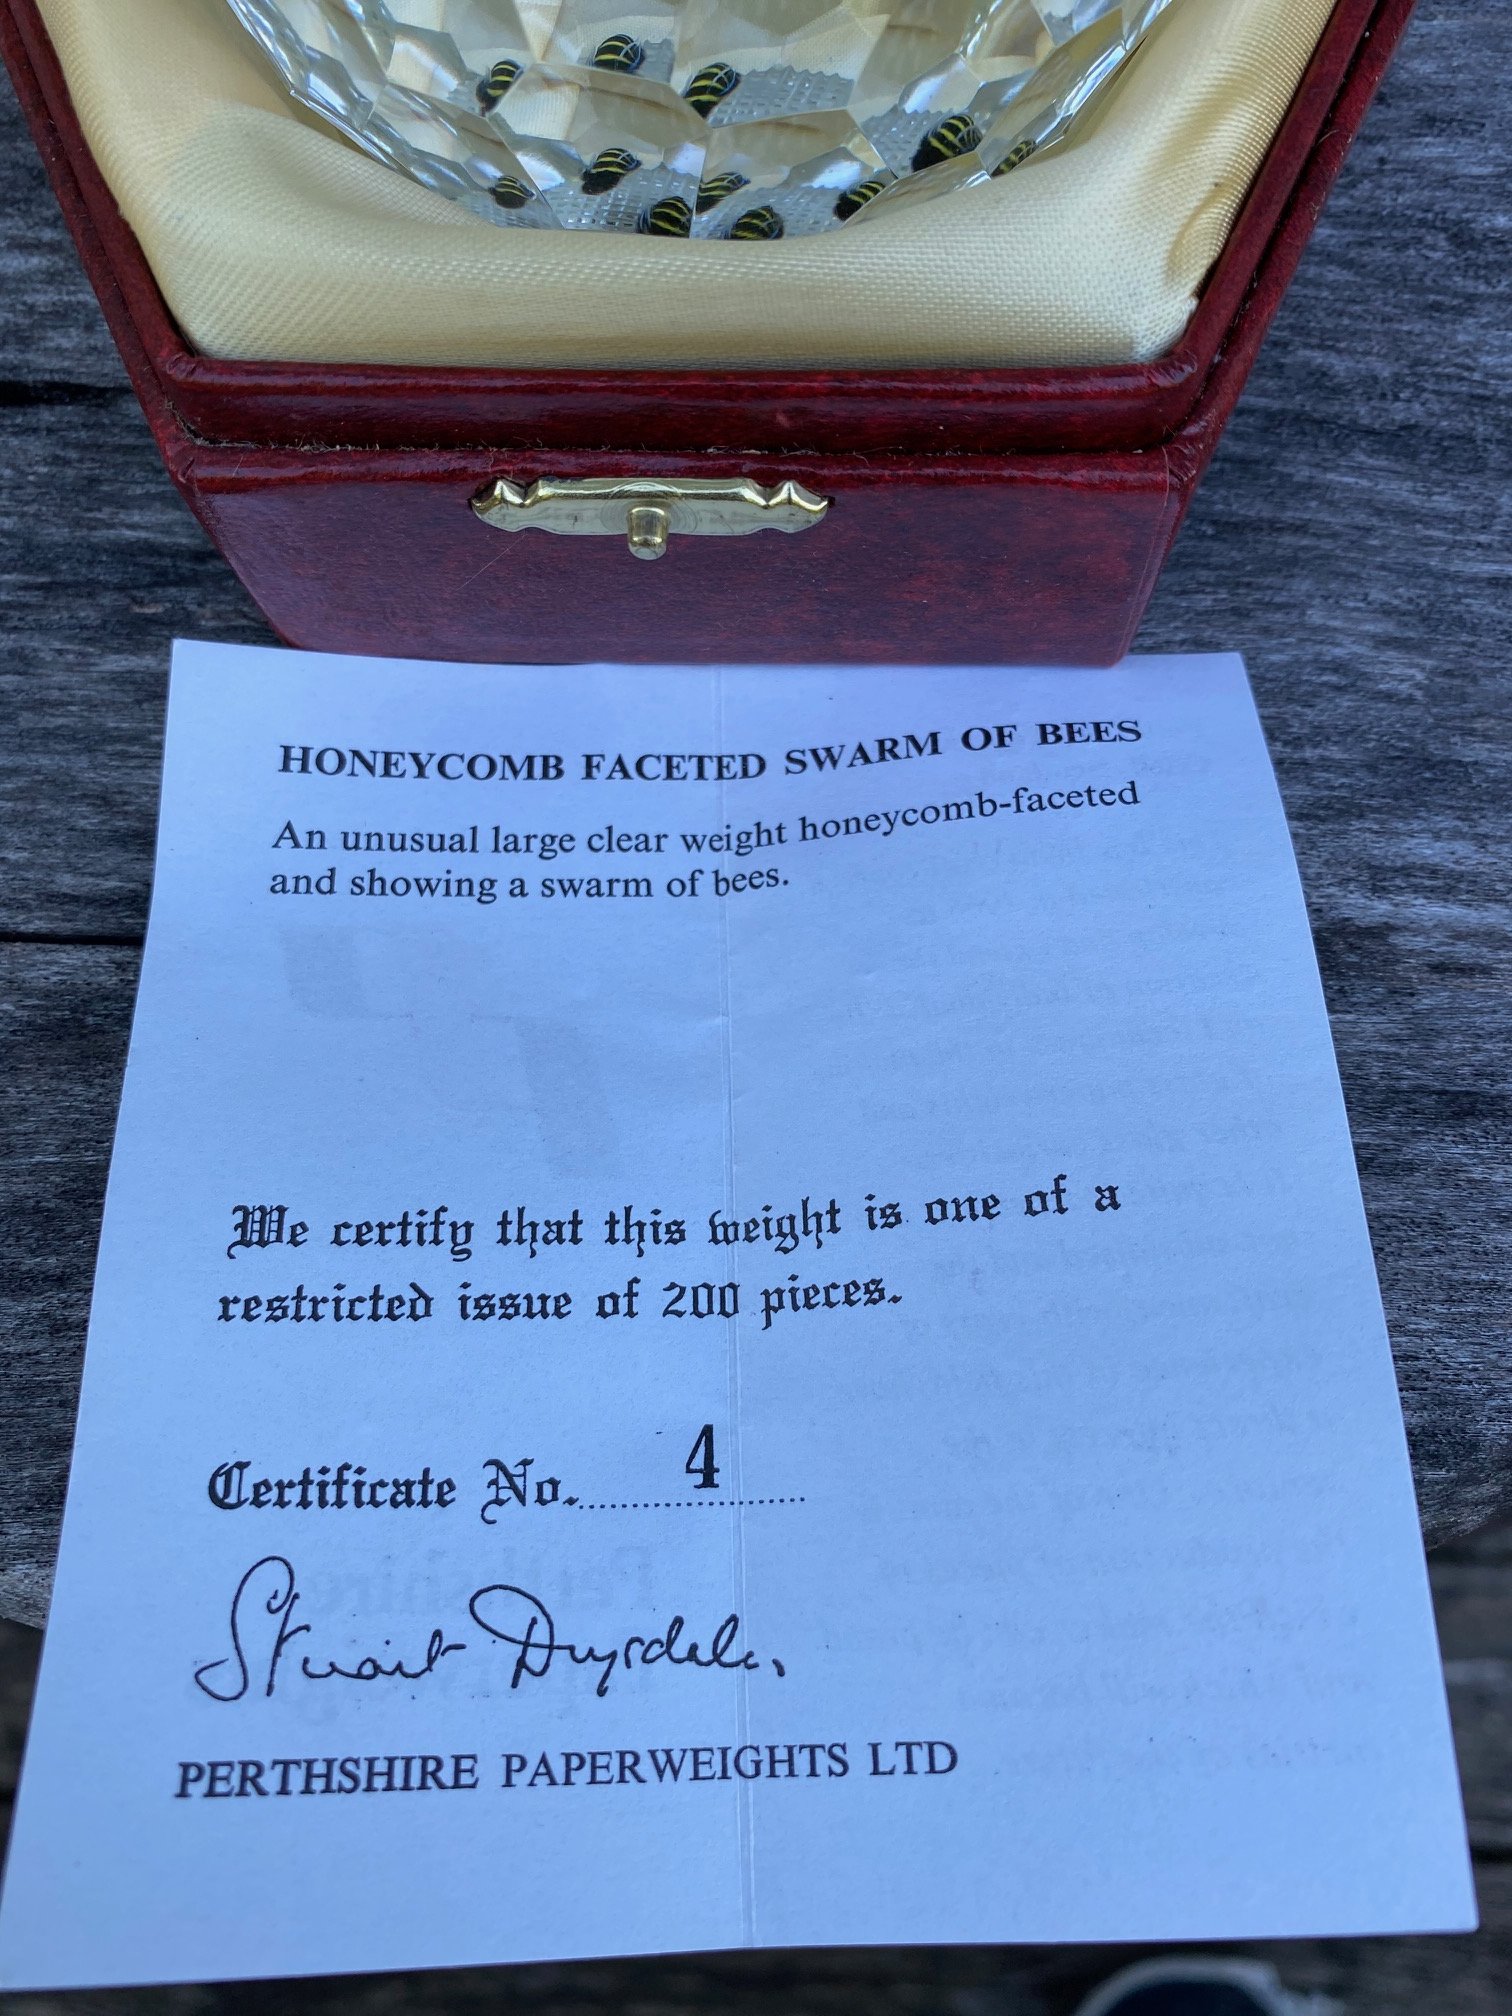 HONEYCOMB FACETED SWARM OF BEES
An unusual large clear weight honeycomb-faceted
and showing a swarm of bees.
We certify that this weight is one of a
restricted issue of 200 pieces.
Certificate No. 4
Stuart Drysdale.
PERTHSHIRE PAPERWEIGHTS LTD